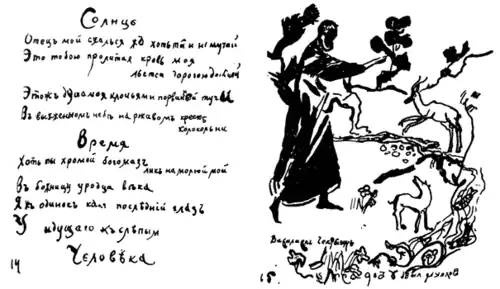 Солнце
Отецъ мой сжалься хоть ты и не мучай
Это тобою пролитая кровь моя
льется дорогою дольней
Этожъ душа моя клочьями порваной тучи
Въ выжженномъ небѣ на ржавомъ крестѣ
колокольни
Время
Хоть ты хромой богомазъ
ликъ намалюй мой
Въ божницу уродца вѣка
Я одинокъ какъ послѣдній глазъ
У идущаго къ слѣпымъ
Человѣка
14
15